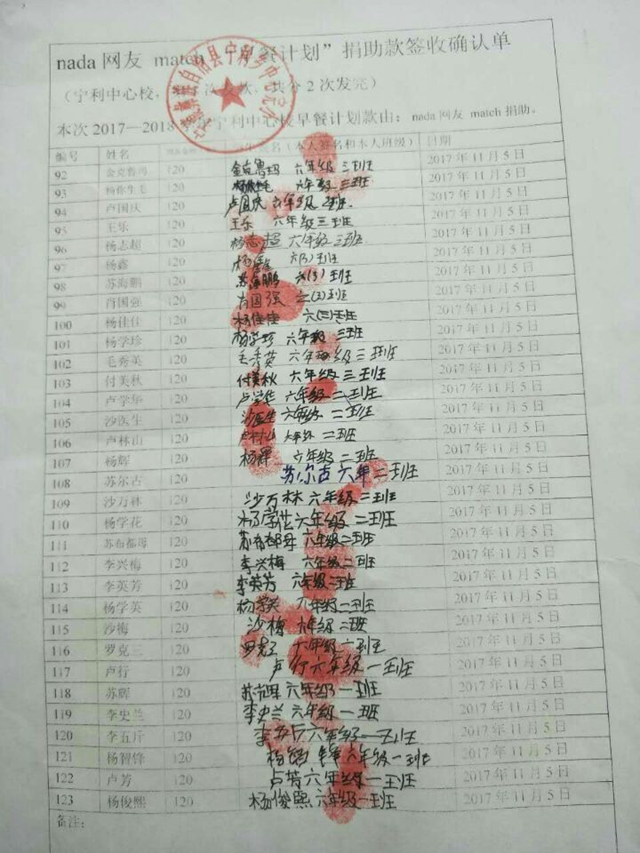 nada 网友 match 餐计划”捐助款签收确认单
(宁利中心校, 次, 共分 2 次发完)
本次 2017—2018 宁利中心校早餐计划款由: nada 网友 match 捐助。
编号 姓名 (本人签名和本人班级) 日期
92 金克鲁玛 120 金克鲁玛 六年级 三班 2017 年 11 月 5 日
93 杨你生毛 120 六年级 三班 2017 年 11 月 5 日
94 卢国庆 120 卢国庆 六年级 2017 年 11 月 5 日
95 王乐 120 王乐 六年级三班 2017 年 11 月 5 日
96 杨志超 120 杨志超 六年级 三班 2017 年 11 月 5 日
97 杨鑫 120 杨鑫 六(3)班 2017 年 11 月 5 日
98 苏海鹏 120 苏海鹏 六(3)班 2017 年 11 月 5 日
99 肖国强 120 肖国强 2017 年 11 月 5 日
100 杨佳佳 120 杨佳佳 六(三)班 2017 年 11 月 5 日
101 杨学珍 120 杨学珍 六年级 三班 2017 年 11 月 5 日
102 毛秀英 120 毛秀英 六年级三班 2017 年 11 月 5 日
103 付美秋 120 付美秋 六年级三班 2017 年 11 月 5 日
104 卢学华 120 卢学华 六年级二班 2017 年 11 月 5 日
105 沙医生 120 沙医生 六年级二班 2017 年 11 月 5 日
106 卢林山 120 卢林山 六年级 二班 2017 年 11 月 5 日
107 杨辉 120 杨辉 六年级二班 2017 年 11 月 5 日
108 苏尔古 120 苏尔古 六年 二班 2017 年 11 月 5 日
109 沙万林 120 沙万林 六年级二班 2017 年 11 月 5 日
110 杨学花 120 杨学花 六年级 二班 2017 年 11 月 5 日
111 苏布都母 120 苏布都母 六年级二班 2017 年 11 月 5 日
112 李兴梅 120 李兴梅 六年级二班 2017 年 11 月 5 日
113 李英芳 120 李英芳 六年级二班 2017 年 11 月 5 日
114 杨学英 120 杨学英 六年级二班 2017 年 11 月 5 日
115 沙梅 120 沙梅 六年级二班 2017 年 11 月 5 日
116 罗克 120 罗克 六年级 班 2017 年 11 月 5 日
117 卢行 120 卢行 六年级一班 2017 年 11 月 5 日
118 苏辉 120 苏辉 六年级一班 2017 年 11 月 5 日
119 李史兰 120 李史兰 六年级一班 2017 年 11 月 5 日
120 李五斤 120 李五 六年级一班 2017 年 11 月 5 日
121 杨智锋 120 杨 六年级一班 2017 年 11 月 5 日
122 卢芳 120 卢芳 六年级一班 2017 年 11 月 5 日
123 杨俊熙 120 杨俊熙 六年级一班 2017 年 11 月 5 日
备注: